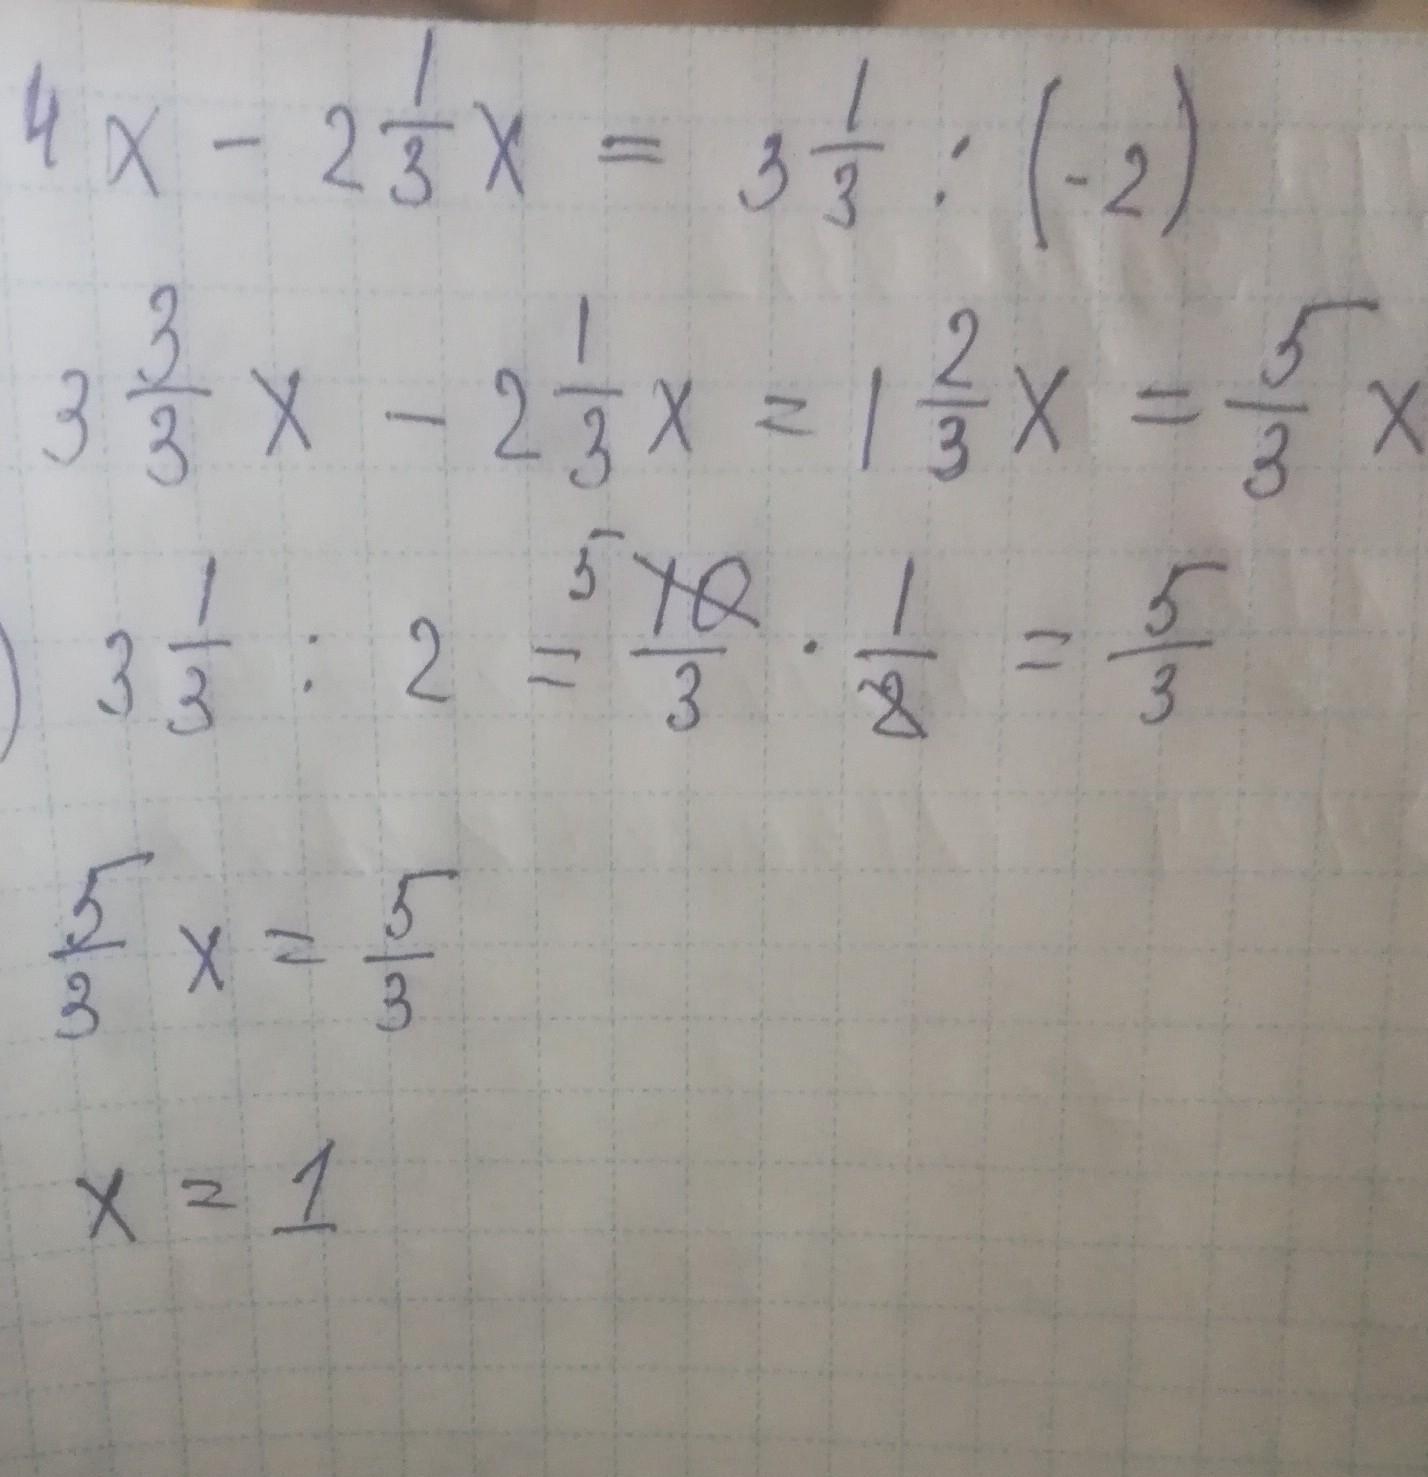 4x - 2 1/3 x = 3 1/3 : (-2)
3 3/3 x - 2 1/3 x = 1 2/3 x = 5/3 x
) 3 1/3 : 2 = 5 10/3 · 1/2 = 5/3
5/3 x = 5/3
x = 1